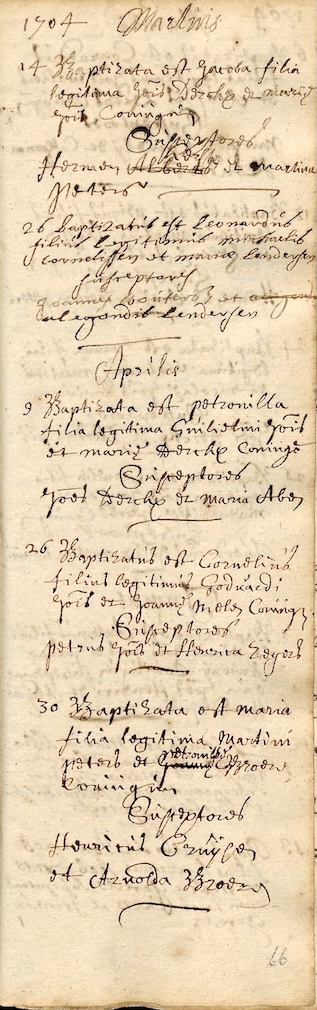 1704 Martius
14 Baptizata est Jacoba filia
legitima Jois Derckx et mariæ
Jois Coningin
Susceptores
Hermen Alberts et martina
Peters
26 Baptizatus est Leonardus
filius legitimus michaelis
Cornelissen et mariæ Lendersen
susceptores
Joannes et
alegondis Lendersen
Aprilis
9 Baptizata est petronilla
filia legitima Guilielmi Jois
et mariæ Derckx Conings
Susceptores
Joes Derckx et Maria Aben
26 Baptizatus est Cornelius
filius legitimus Godvardi
Jois et Joannæ
Susceptores
petrus Jois et Henrica Zegers
30 Baptizata est maria
filia legitima Martini
petronillæ
peters et Joannæ Broeren
Coningin
Susceptores
Henricus Cruijsen
et Arnolda Broeren
66